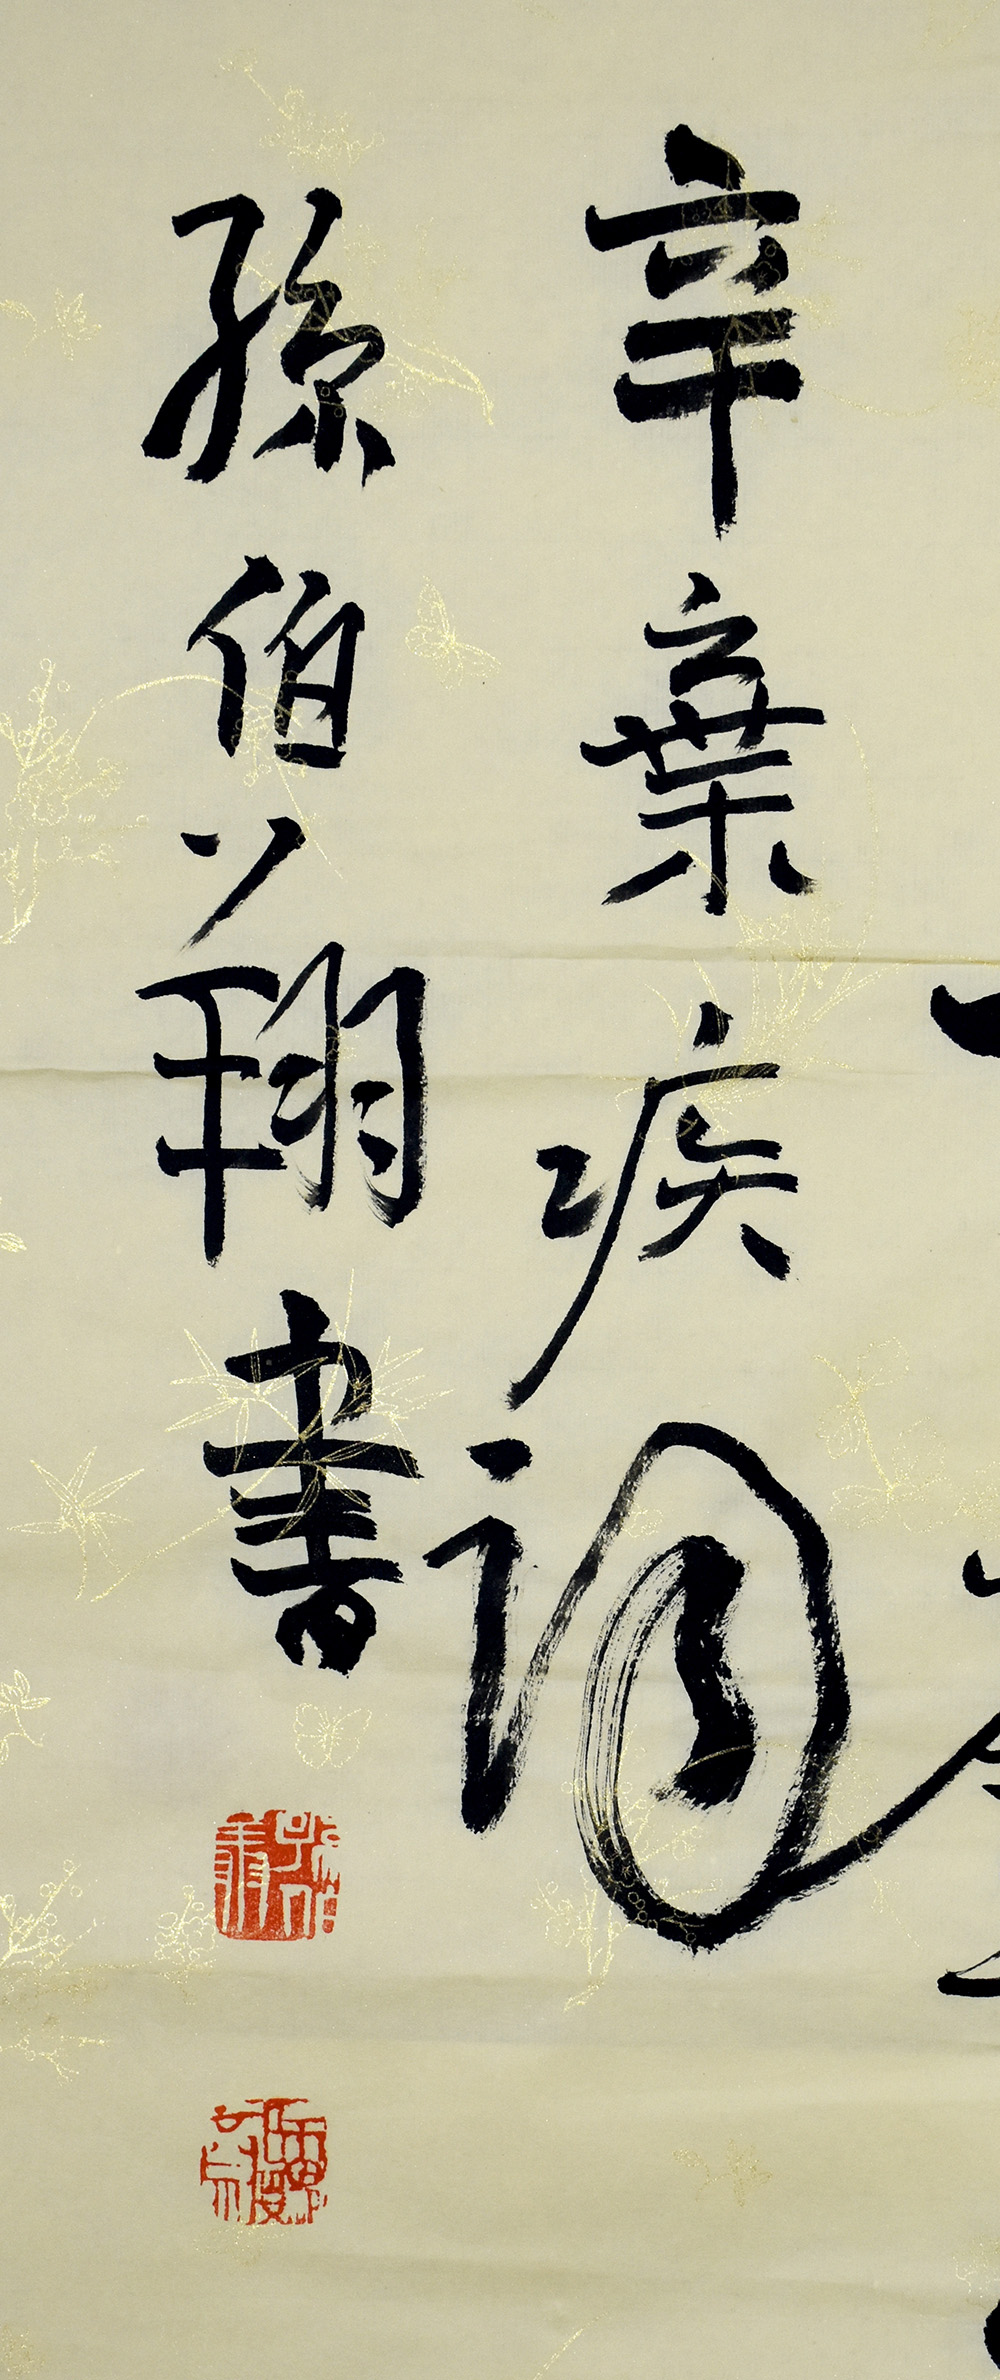 辛棄疾詞
孫伯翔書